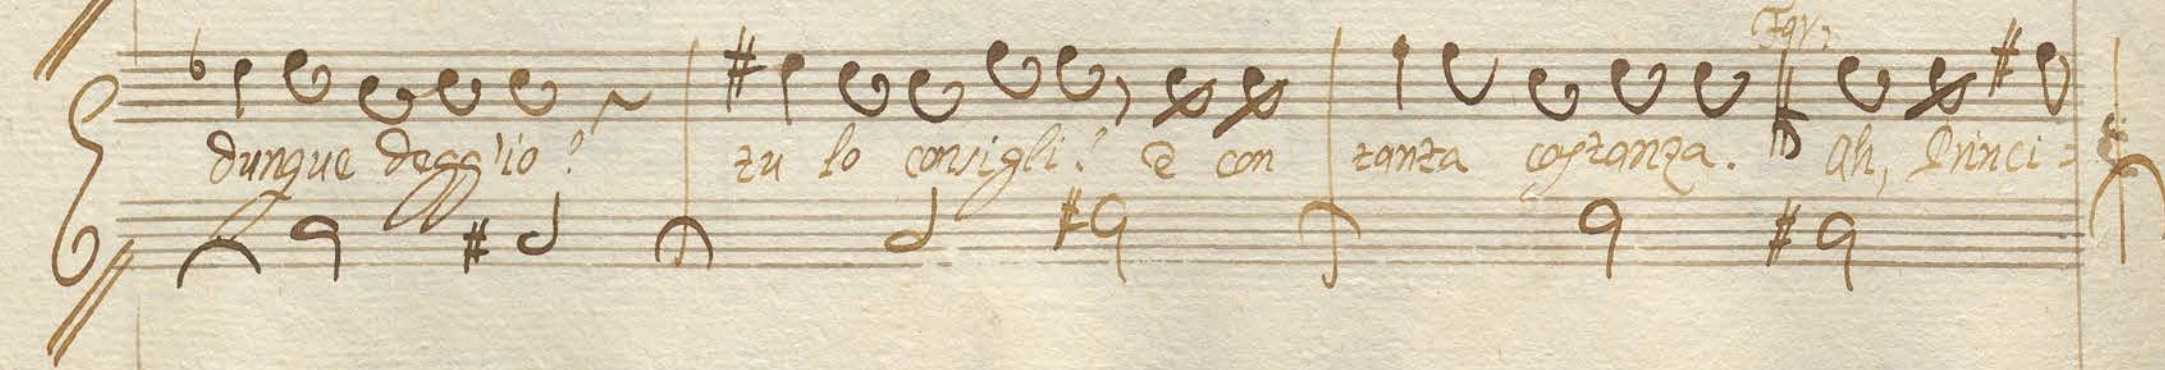 dunque degg'io? tu lo consigli? e con tanta costanza. Ah, Princi=